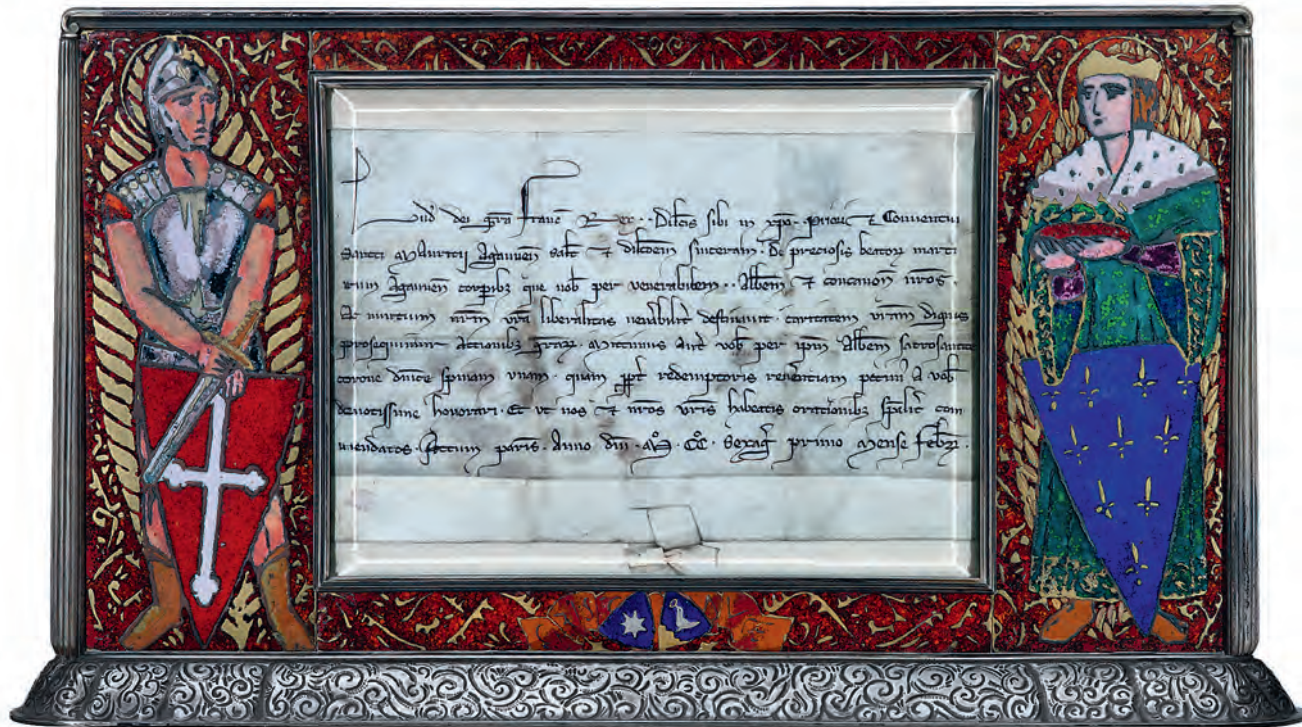 Lud' dei gra franc Rex.. Dilcis sibi in xpo. priori et Conventui
Sancti Mauricii Agaunen salt et dilcoem sinceram. De preciosis beator marti
rum Agaunen corporibz que nob per venerabilem.. Abbem et concanon uros.
Ac nuncium nrm vra liberalitas venabilit destinavit. caritatem vram dignis
prosequimur Actionibz grar. Mittimus aut vob per ipm Abbem sacrosancte
corone dnice spinam unam. quam ppt redemptoris reventiam petim A vob
devotissime honorari. Et ut nos et nros vris habeatis orationibz spelit com
mendatos. Actum paris. Anno dni. Mo. CCo. sexag primo mense febr.